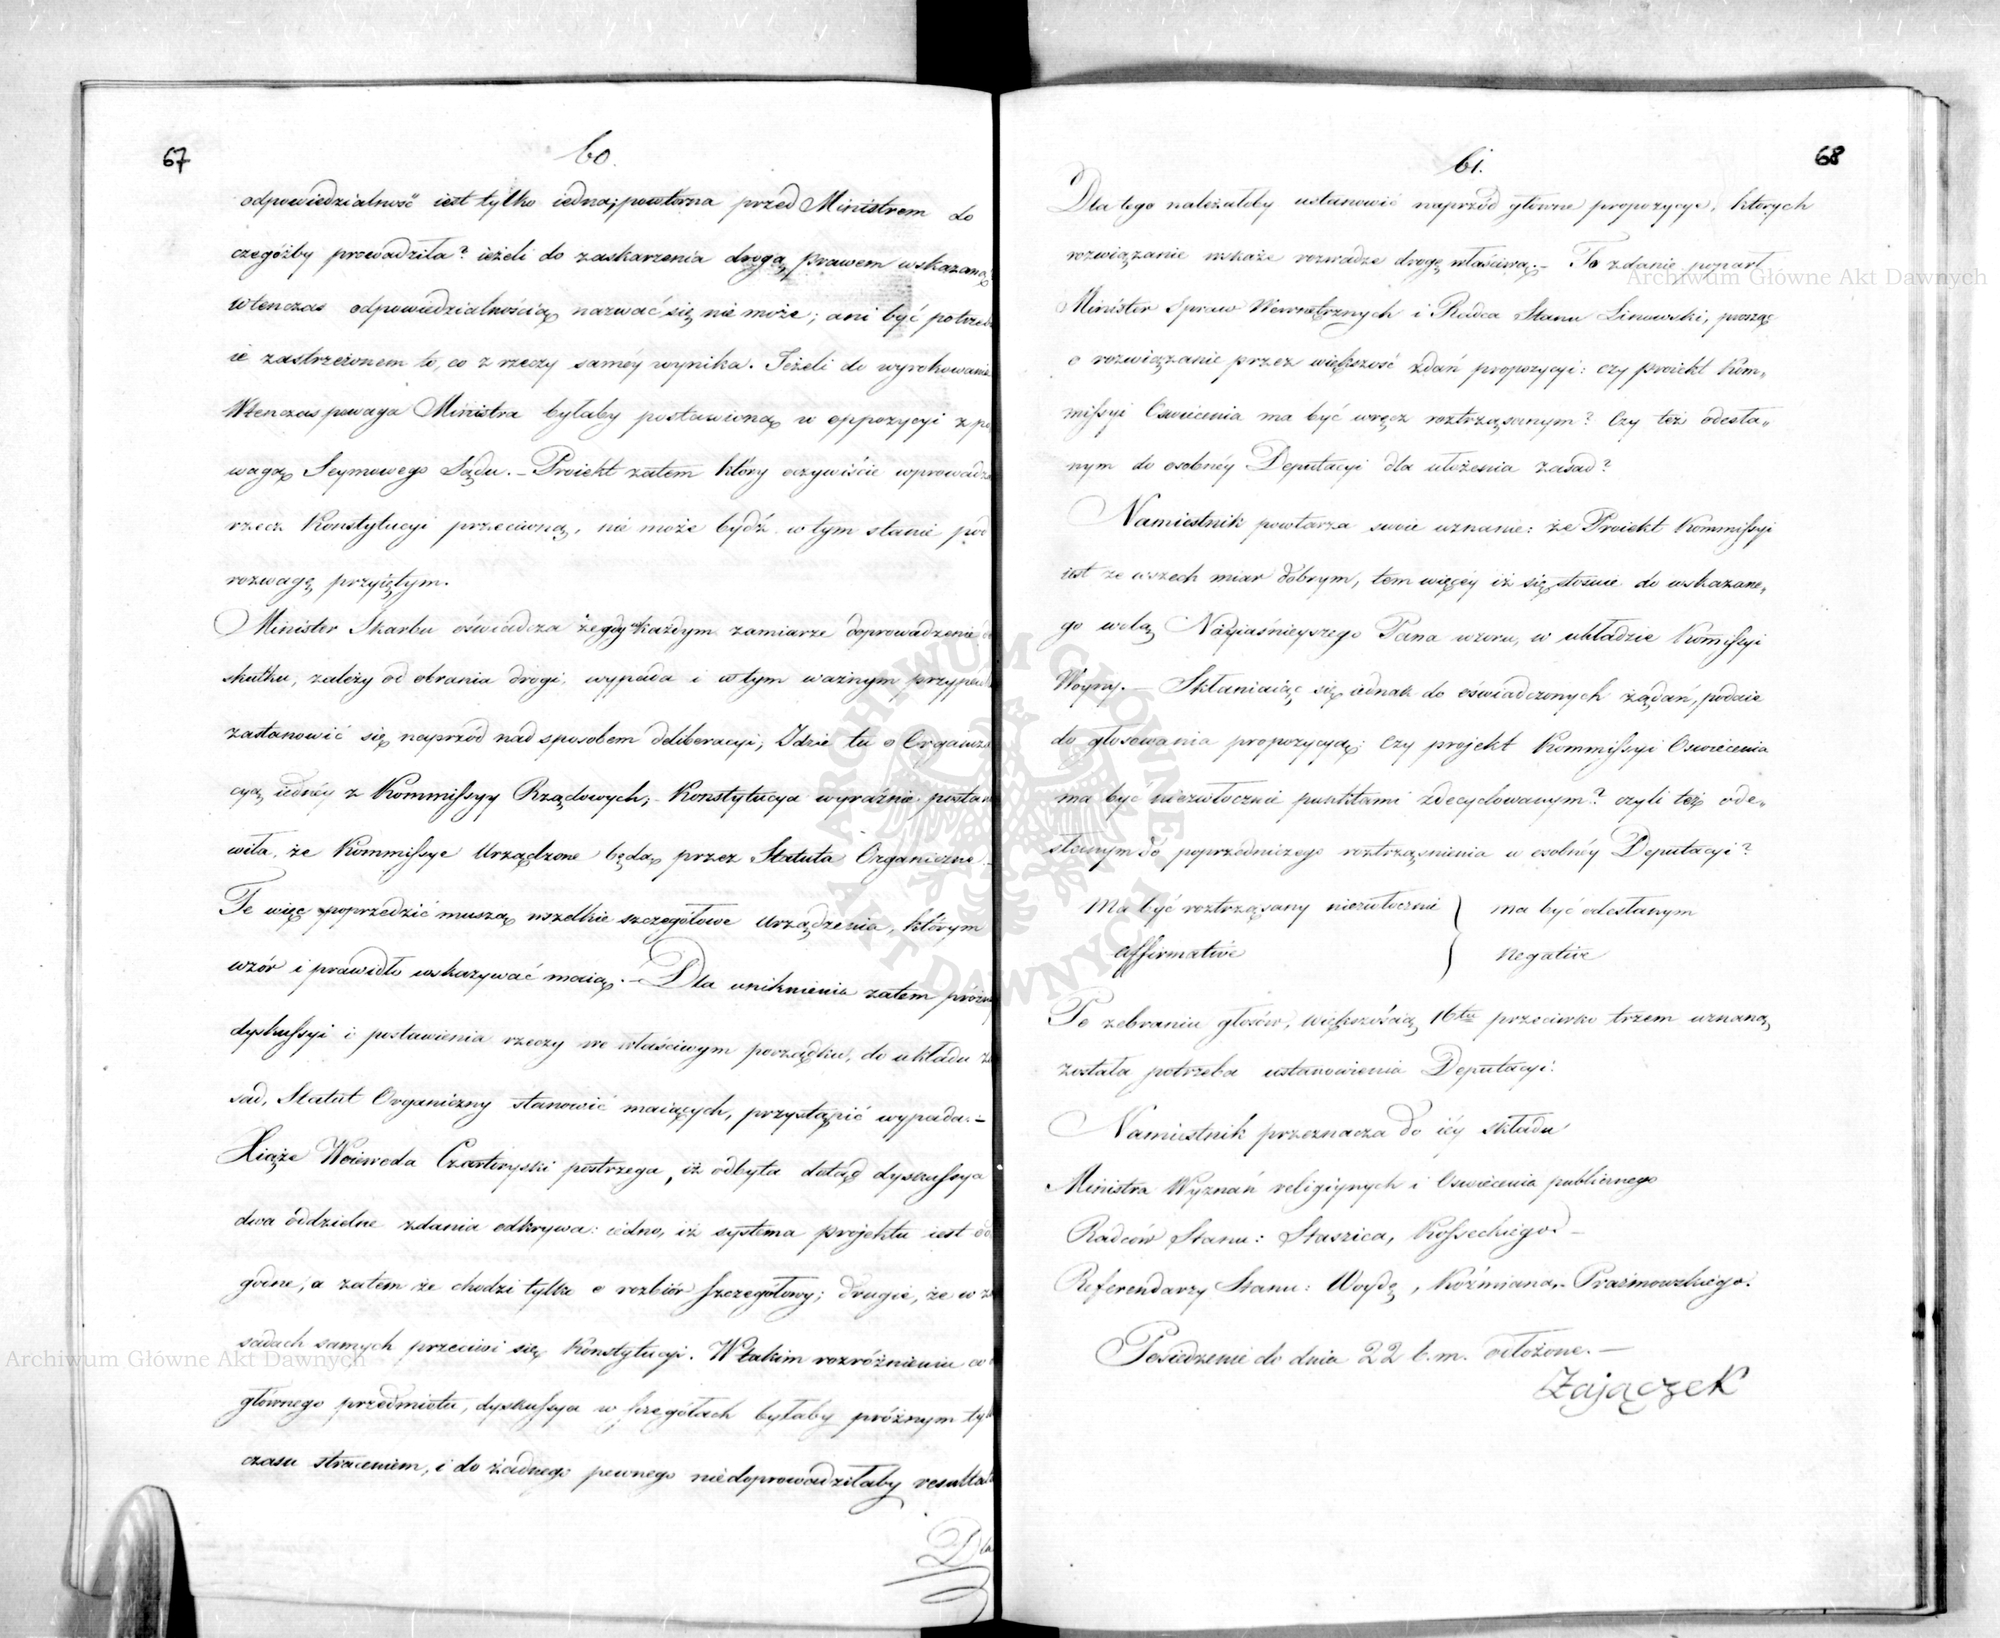 67
60.
odpowiedzialność iest tylko iedna; powtórna przed Ministrem do
czegóżby prowadziła? ieżeli do zaskarzenia drogą prawem wskazaną
wtenczas odpowiedzialnością nazwać się nie może; ani być potrzeb
ie zastrzeżonem to, co z rzeczy saméy wynika. Jeżeli do wyrokowania
Wtenczas powaga Ministra byłaby postawioną w oppozycyi z po
wagą Seymowego Sądu. – Proiekt zatem który oczywiście wprowadza
rzecz Konstytucyi przeciwną, nie może bydź w tym stanie pod
rozwagę przyiętym.
Minister Skarbu oświadcza że gdy w każdym zamiarze doprowadzenie do
skutku, zależy od obrania drogi, wypada i w tym ważnym przypad
zastanowić się naprzód nad sposobem deliberacyi; Idzie tu o Organiza
cyą iednéy z Kommissyy Rządowych; – Konstytucya wyraźnie postan
wiła, że Kommissye Urządzone będą przez Statuta Organiczne –
Te więc poprzedzić muszą wszelkie szczegółowe urządzenia, którym
wzór i prawidło wskazywać maią. – Dla uniknienia zatem próżn
dyskussyi i postawienia rzeczy we właściwym porządku, do układu za
sad, Statut Organiczny stanowić maiących, przystąpić wypada. –
Xiąże Woiewoda Czartoryski postrzega, iż odbyta dotąd dyskussya
dwa oddzielne zdania odkrywa: iedno, iż systema projektu iest do
godne, a zatem że chodzi tylko o rozbiór szczegółowy; drugie, że w za
sadach samych przeciwi się Konstytucyi. W takim rozróżnieniu co do
głównego przedmiotu, dyskussya w szczegółach byłaby próżnym tylko
czasu straceniem, i do żadnego pewnego niedoprowadziłaby resulta
Dla
68
61.
Dla tego należałoby ustanowić naprzód główne propozycye, których
rozwiązanie wskaże rozwadze drogę właściwą. – To zdanie poparł
Minister Spraw Wewnętrznych i Radca Stanu Linowski, prosząc
o rozwiązanie przez większość zdań propozycyi: czy proiekt Kom„
missyi Oswiecenia ma być wręcz roztrząsanym? Czy też odesła„
nym do osobnéy Deputacyi dla ułożenia zasad?
Namiestnik powtarza swoie uznanie: że Proiekt Kommissyi
iest ze wszech miar dobrym, tem więcéy iż się stosuie do wskazane„
go wolą Nayiaśnieyszego Pana wzoru, w układzie Kommissyi
Woyny. – Skłaniaiąc się iednak do oświadczonych żądań, podaie
do głosowania propozycyą: czy projekt Kommissyi Oswiecenia
ma być niezwłocznie punktami zdecydowanym? czyli też ode„
słanym do poprzedniczego roztrząsnienia w osobnéy Deputacyi?
Ma być roztrząsany niezwłocznie } ma być odesłanym
affirmative } negative
Po zebraniu głosów, większością 16tu przeciwko trzem uznaną
została potrzeba ustanowienia Deputacyi.
Namiestnik przeznacza do iéy składu
Ministra Wyznań religiynych i Oswiecenia publicznego
Radców Stanu: Staszica, Kosseckiego –
Referendarzy Stanu: Woydę, Koźmiana, – Prażmowskiego.
Posiedzenie do dnia 22 b. m. odłożone. –
Zajączek
Archiwum Główne Akt Dawnych
Archiwum Główne Akt Dawnych
ARCHIWUM GŁÓWNE AKT DAWNYCH